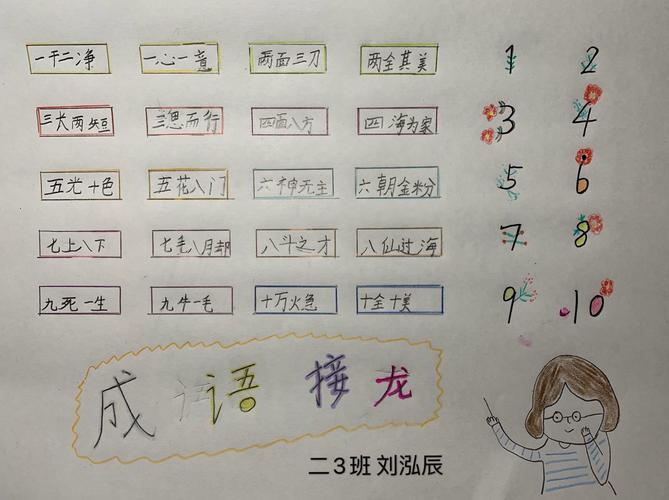 一干二净 一心一意 两面三刀 两全其美 1 2
三长两短 三思而行 四面八方 四海为家 3 4
五光十色 五花八门 六神无主 六朝金粉 5 6
七上八下 七手八脚 八斗之才 八仙过海 7 8
九死一生 九牛一毛 十万火急 十全十美 9 10
成语接龙
二3班 刘泓辰